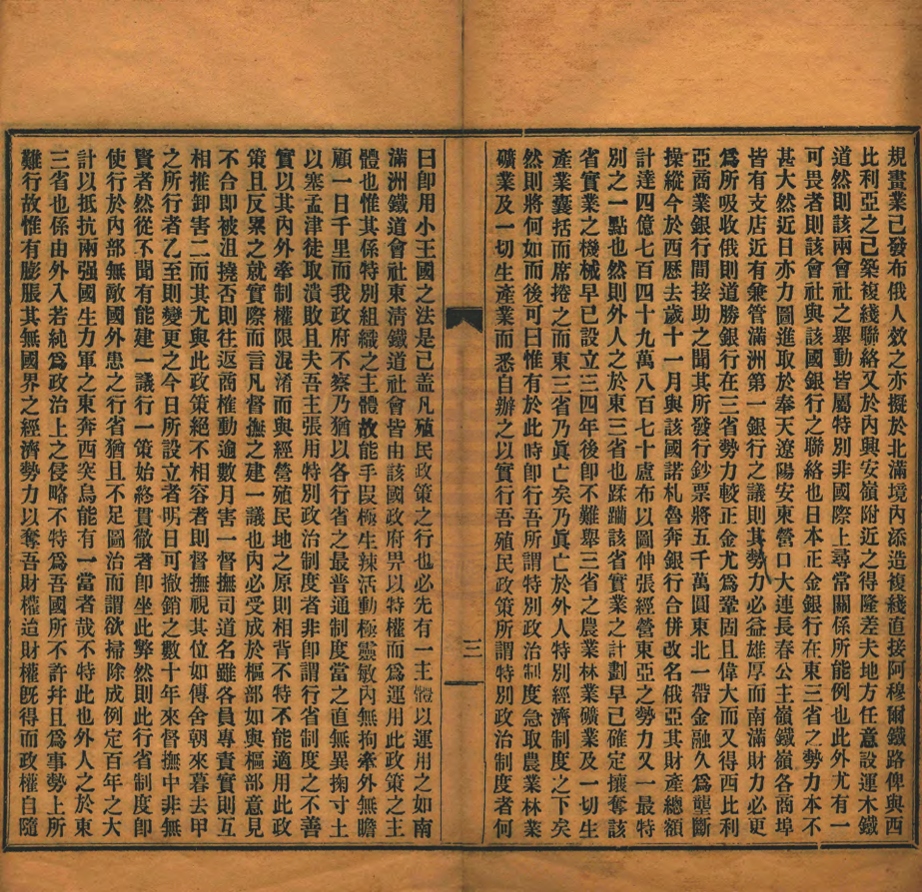 規畫業已發布俄人效之亦擬於北滿境內添造複綫直接阿穆爾鐵路俾與西
比利亞之已築複綫聯絡又於內興安嶺附近之得隆差夫地方任意設運木鐵
道然則該兩會社之舉動皆屬特別非國際上尋常關係所能例也此外尤有一
可畏者則該會社與該國銀行之聯絡也日本正金銀行在東三省之勢力本不
甚大然近日亦力圖進取於奉天遼陽安東營口大連長春公主嶺鐵嶺各商埠
皆有支店近有兼管滿洲第一銀行之議則其勢力必益雄厚而南滿財力必更
爲所吸收俄則道勝銀行在三省勢力較正金尤爲鞏固且偉大而又得西比利
亞商業銀行間接助之聞其所發行鈔票將五千萬圓東北一帶金融久爲壟斷
操縱今於西歷去歲十一月與該國諾札魯奔銀行合併改名俄亞其財產總額
計達四億七百四十九萬八百七十盧布以圖伸張經營東亞之勢力又一最特
別之一點也然則外人之於東三省也蹂躪該省實業之計劃早已確定攘奪該
省實業之機械早已設立三四年後卽不難舉三省之農業林業礦業及一切生
產業囊括而席捲之而東三省乃眞亡矣乃眞亡於外人特別經濟制度之下矣
然則將何如而後可曰惟有於此時卽行吾所謂特別政治制度急取農業林業
礦業及一切生產業而悉自辦之以實行吾殖民政策所謂特別政治制度者何
三
曰卽用小王國之法是已蓋凡殖民政策之行也必先有一主體以運用之如南
滿洲鐵道會社東清鐵道社會皆由該國政府畀以特權而爲運用此政策之主
體也惟其係特別組織之主體故能手段極生辣活動極靈敏內無拘牽外無瞻
顧一日千里而我政府不察乃猶以各行省之最普通制度當之直無異掬寸土
以塞孟津徒取潰敗且夫吾主張用特別政治制度者非卽謂行省制度之不善
實以其內外牽制權限混淆而與經營殖民地之原則相背不特不能適用此政
策且反累之就實際而言凡督撫之建一議也內必受成於樞部如與樞部意見
不合卽被沮撓否則往返商榷動逾數月害一督撫司道名雖各員專責實則互
相推卸害二而其尤與此政策絕不相容者則督撫視其位如傅舍朝來暮去甲
之所行者乙至則變更之今日所設立者明日可撤銷之數十年來督撫中非無
賢者然從不聞有能建一議行一策始終貫徹者卽坐此弊然則此行省制度卽
使行於內部無敵國外患之行省猶且不足圖治而謂欲掃除成例定百年之大
計以抵抗兩强國生力軍之東奔西突烏能有一當者哉不特此也外人之於東
三省也係由外入若純爲政治上之侵略不特爲吾國所不許幷且爲事勢上所
難行故惟有膨脹其無國界之經濟勢力以奪吾財權迨財權旣得而政權自隨